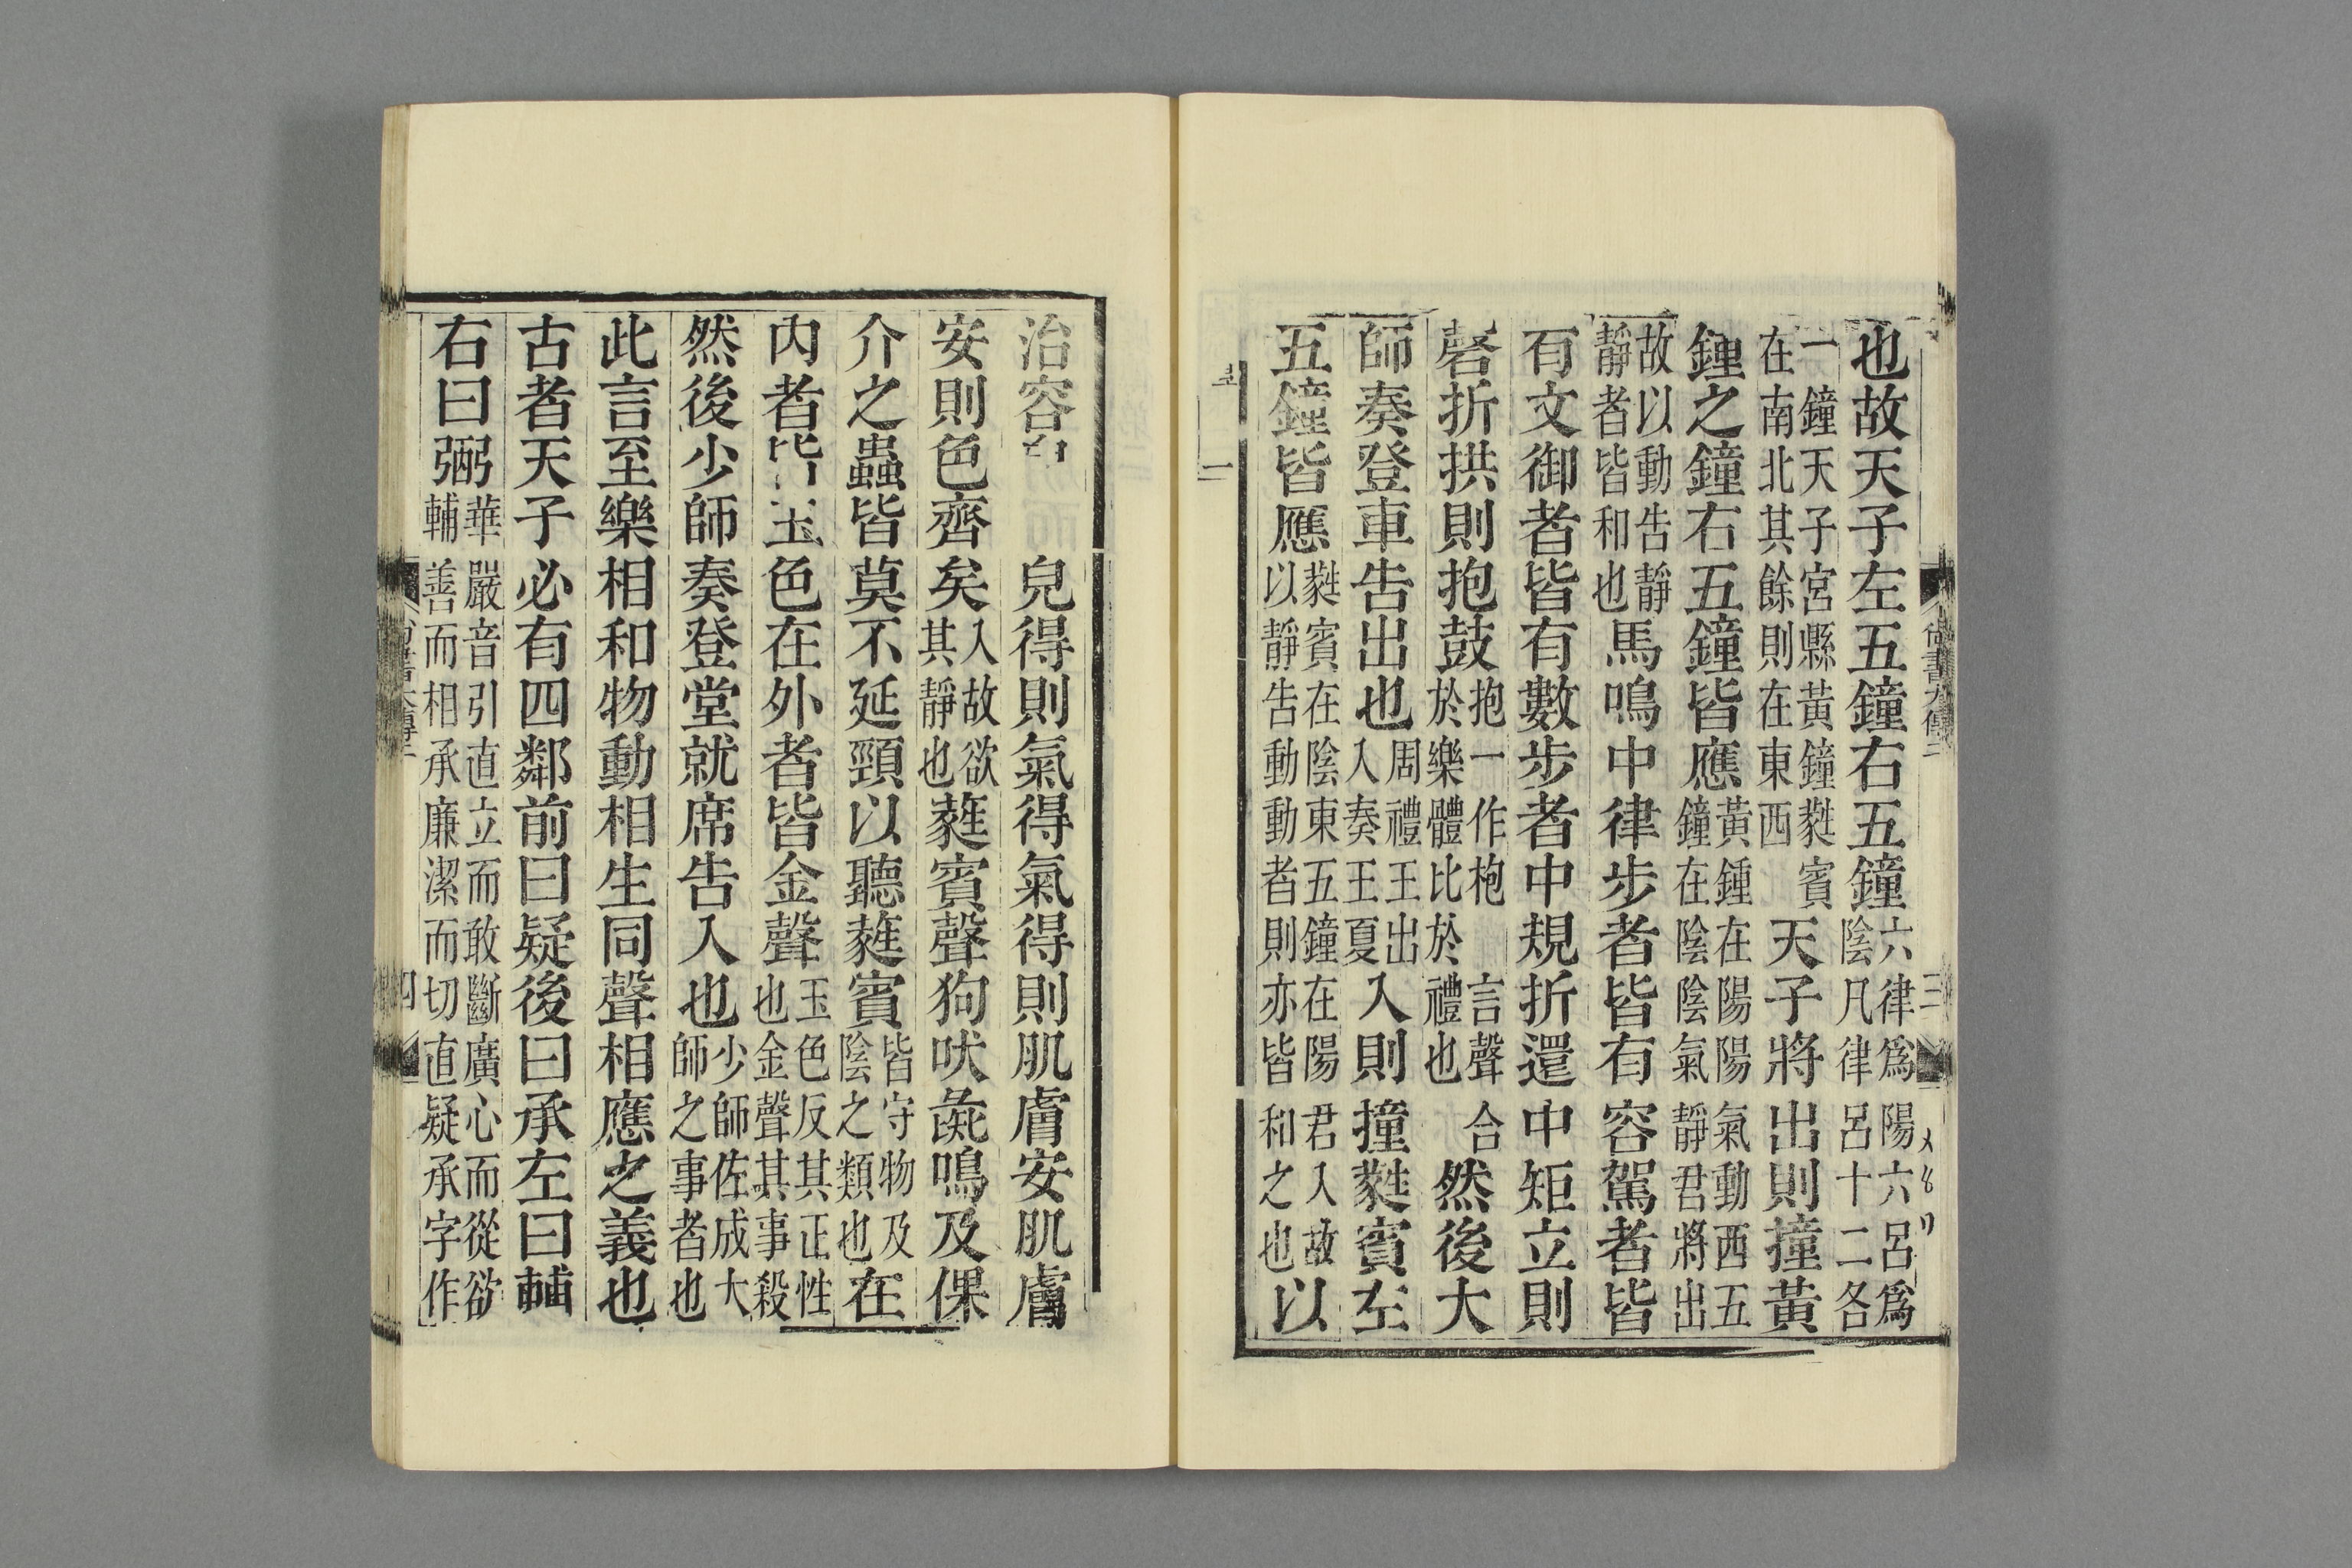 尚書大傳二
三
也故天子左五鐘右五鐘六律爲陽六呂爲陰凡律呂十二各
一鐘天子宮縣黃鐘蕤賓在南北其餘則在東西天子將出則撞黃
鍾之鐘右五鐘皆應黃鍾在陽陽氣動西五鐘在陰陰氣靜君將出
故以動告靜靜者皆和也馬鳴中律步者皆有容駕者皆
有文御者皆有數步者中規折還中矩立則
磬折拱則抱鼓抱一作枹 言聲合於樂體比於禮也然後大
師奏登車告出也周禮王出入奏王夏入則撞蕤賓左
五鐘皆應蕤賓在陰東五鐘在陽君入故以靜告動動者則亦皆和之也以
治容皃得則氣得氣得則肌膚安肌膚
安則色齊矣入故欲其靜也蕤賓聲狗吠彘鳴及倮
介之蟲皆莫不延頸以聽蕤賓皆守物及陰之類也在
內者皆玉色在外者皆金聲玉色反其正性也金聲其事殺
然後少師奏登堂就席告入也少師佐成大師之事者也
此言至樂相和物動相生同聲相應之義也
古者天子必有四鄰前曰疑後曰承左曰輔
右曰弼華嚴音引直立而敢斷廣心而從欲輔善而相承廉潔而切直疑承字作
四